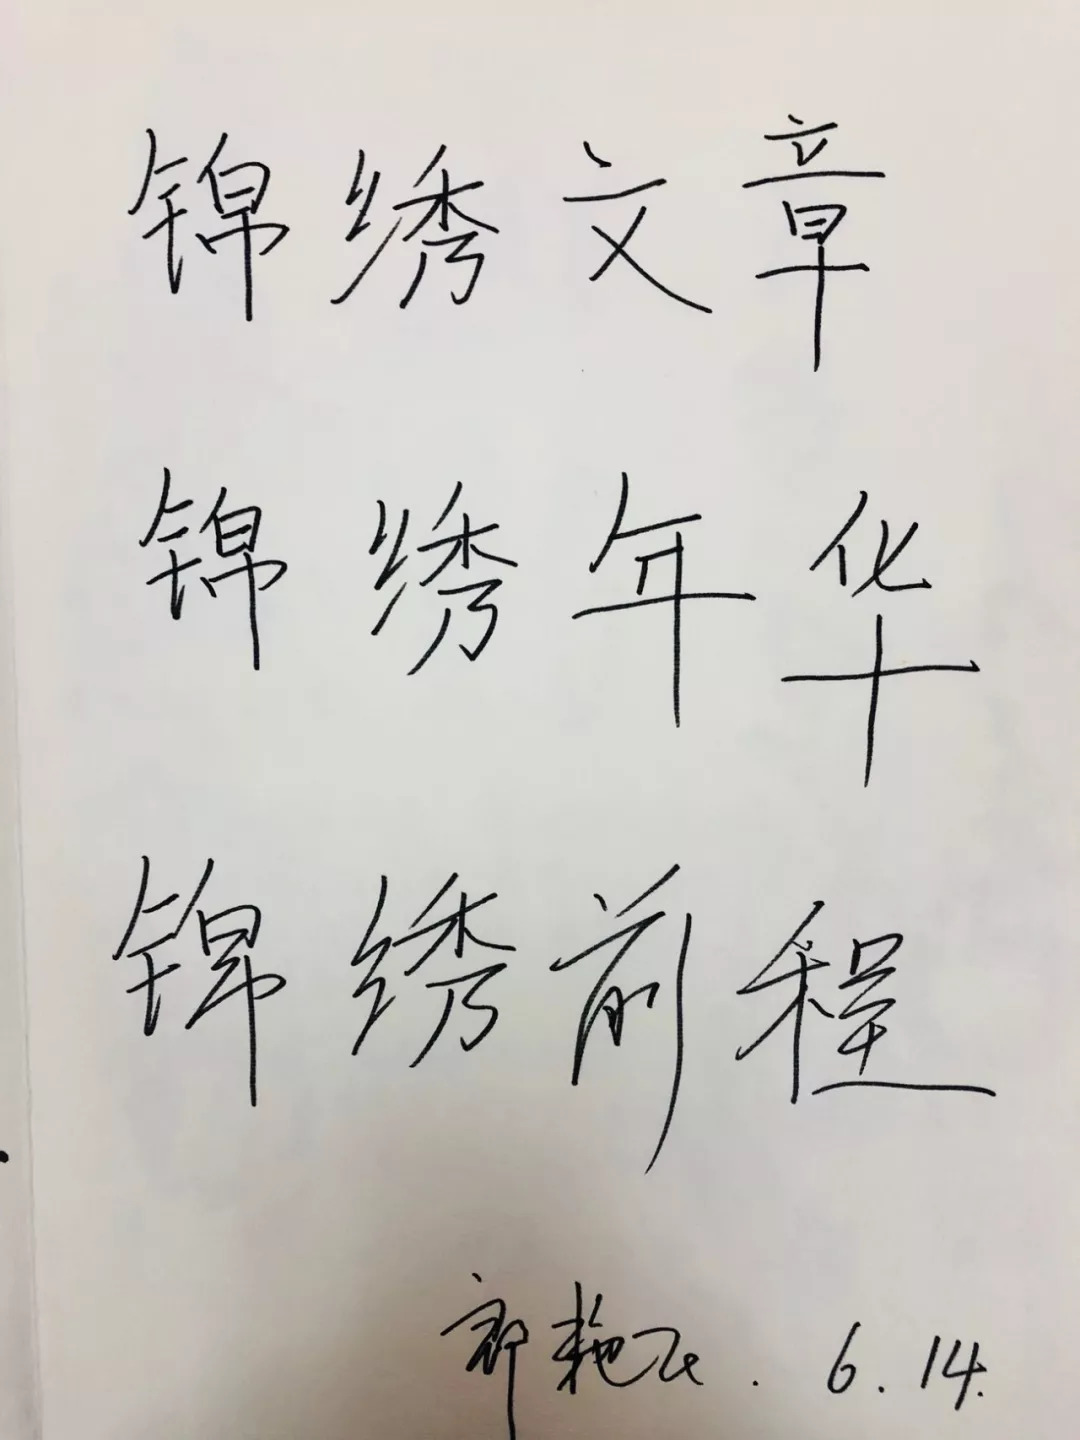 锦绣文章
锦绣年华
锦绣前程
郭艳飞. 6.14.